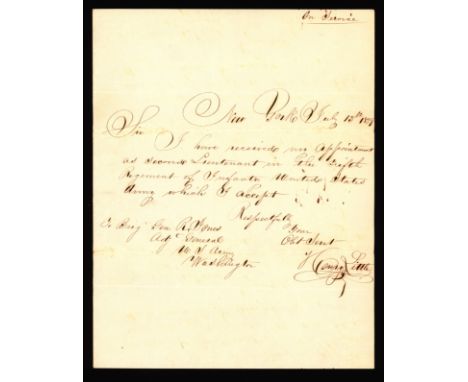 On Service
New York July 12th
Sir
I have received my appointment
as Second Lieutenant in the Fifth
Regiment of Infantry United States
Army which I accept
Respectfully
To Brig Gen R. Jones Your
Adjt General Obt Servt
U. S. Army Henry Little
Washington